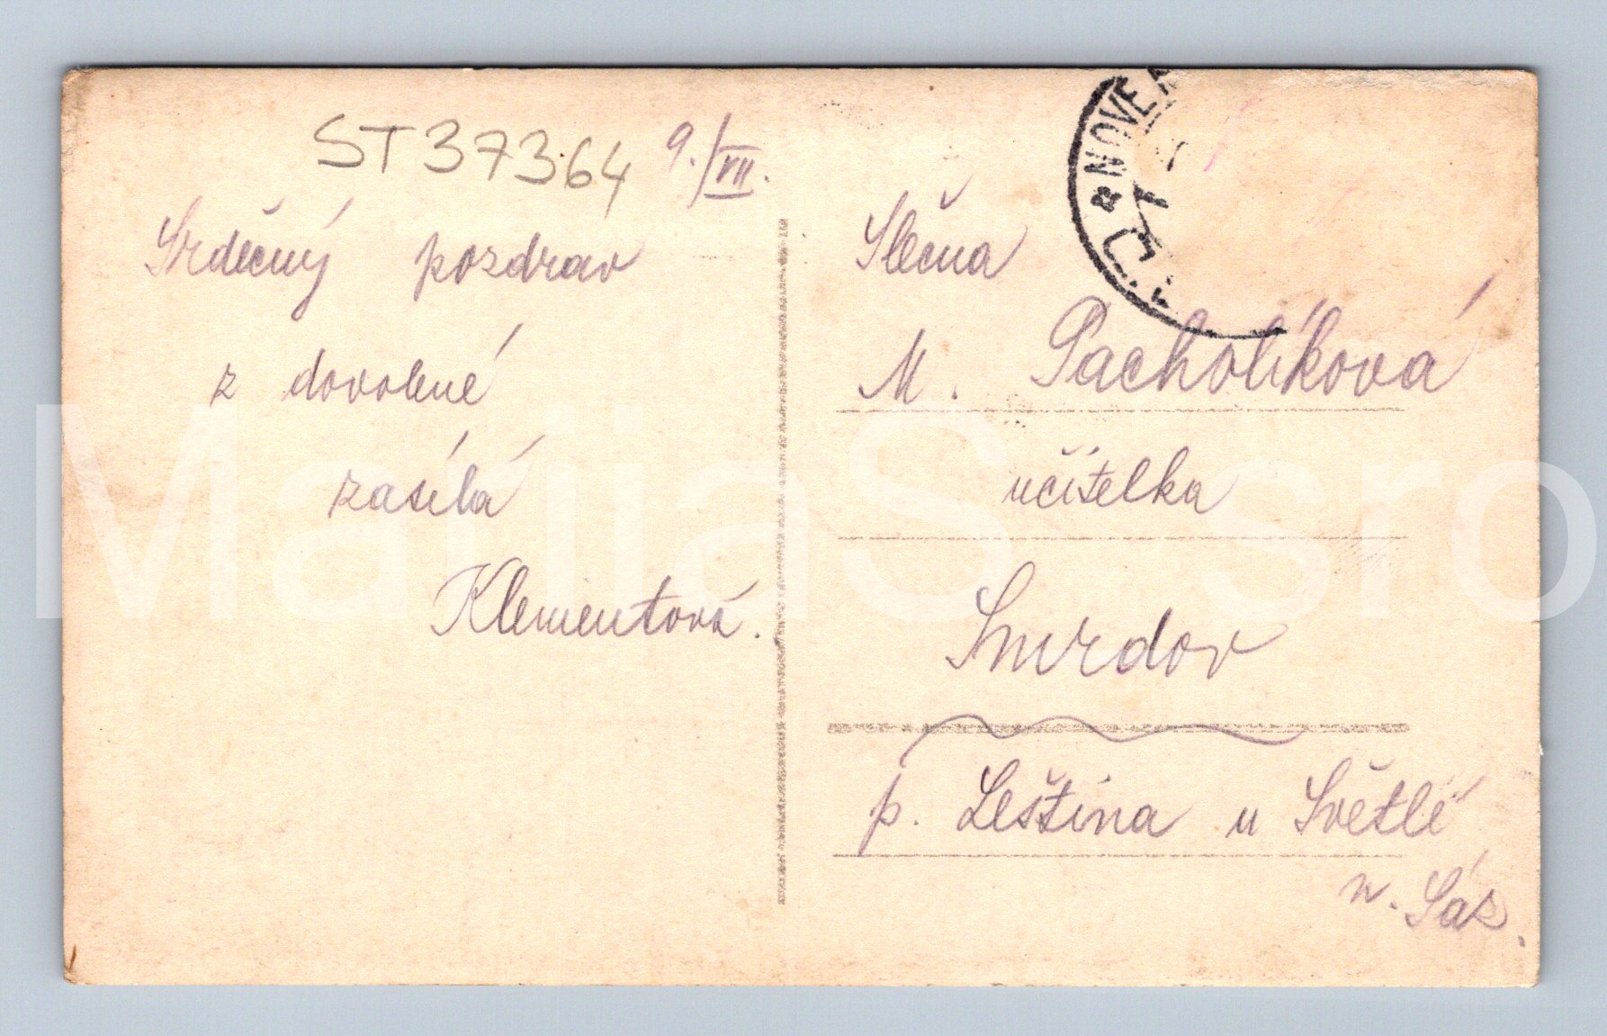 ST 37364 9./VII.
Srdečný pozdrav
z dovolené
zasílá
Klementová.
NOVÉ
Slečna
M. Pacholíková
učitelka
Smrdov
p. Leština u Světlé
n. Sáz.
MarijaS sro